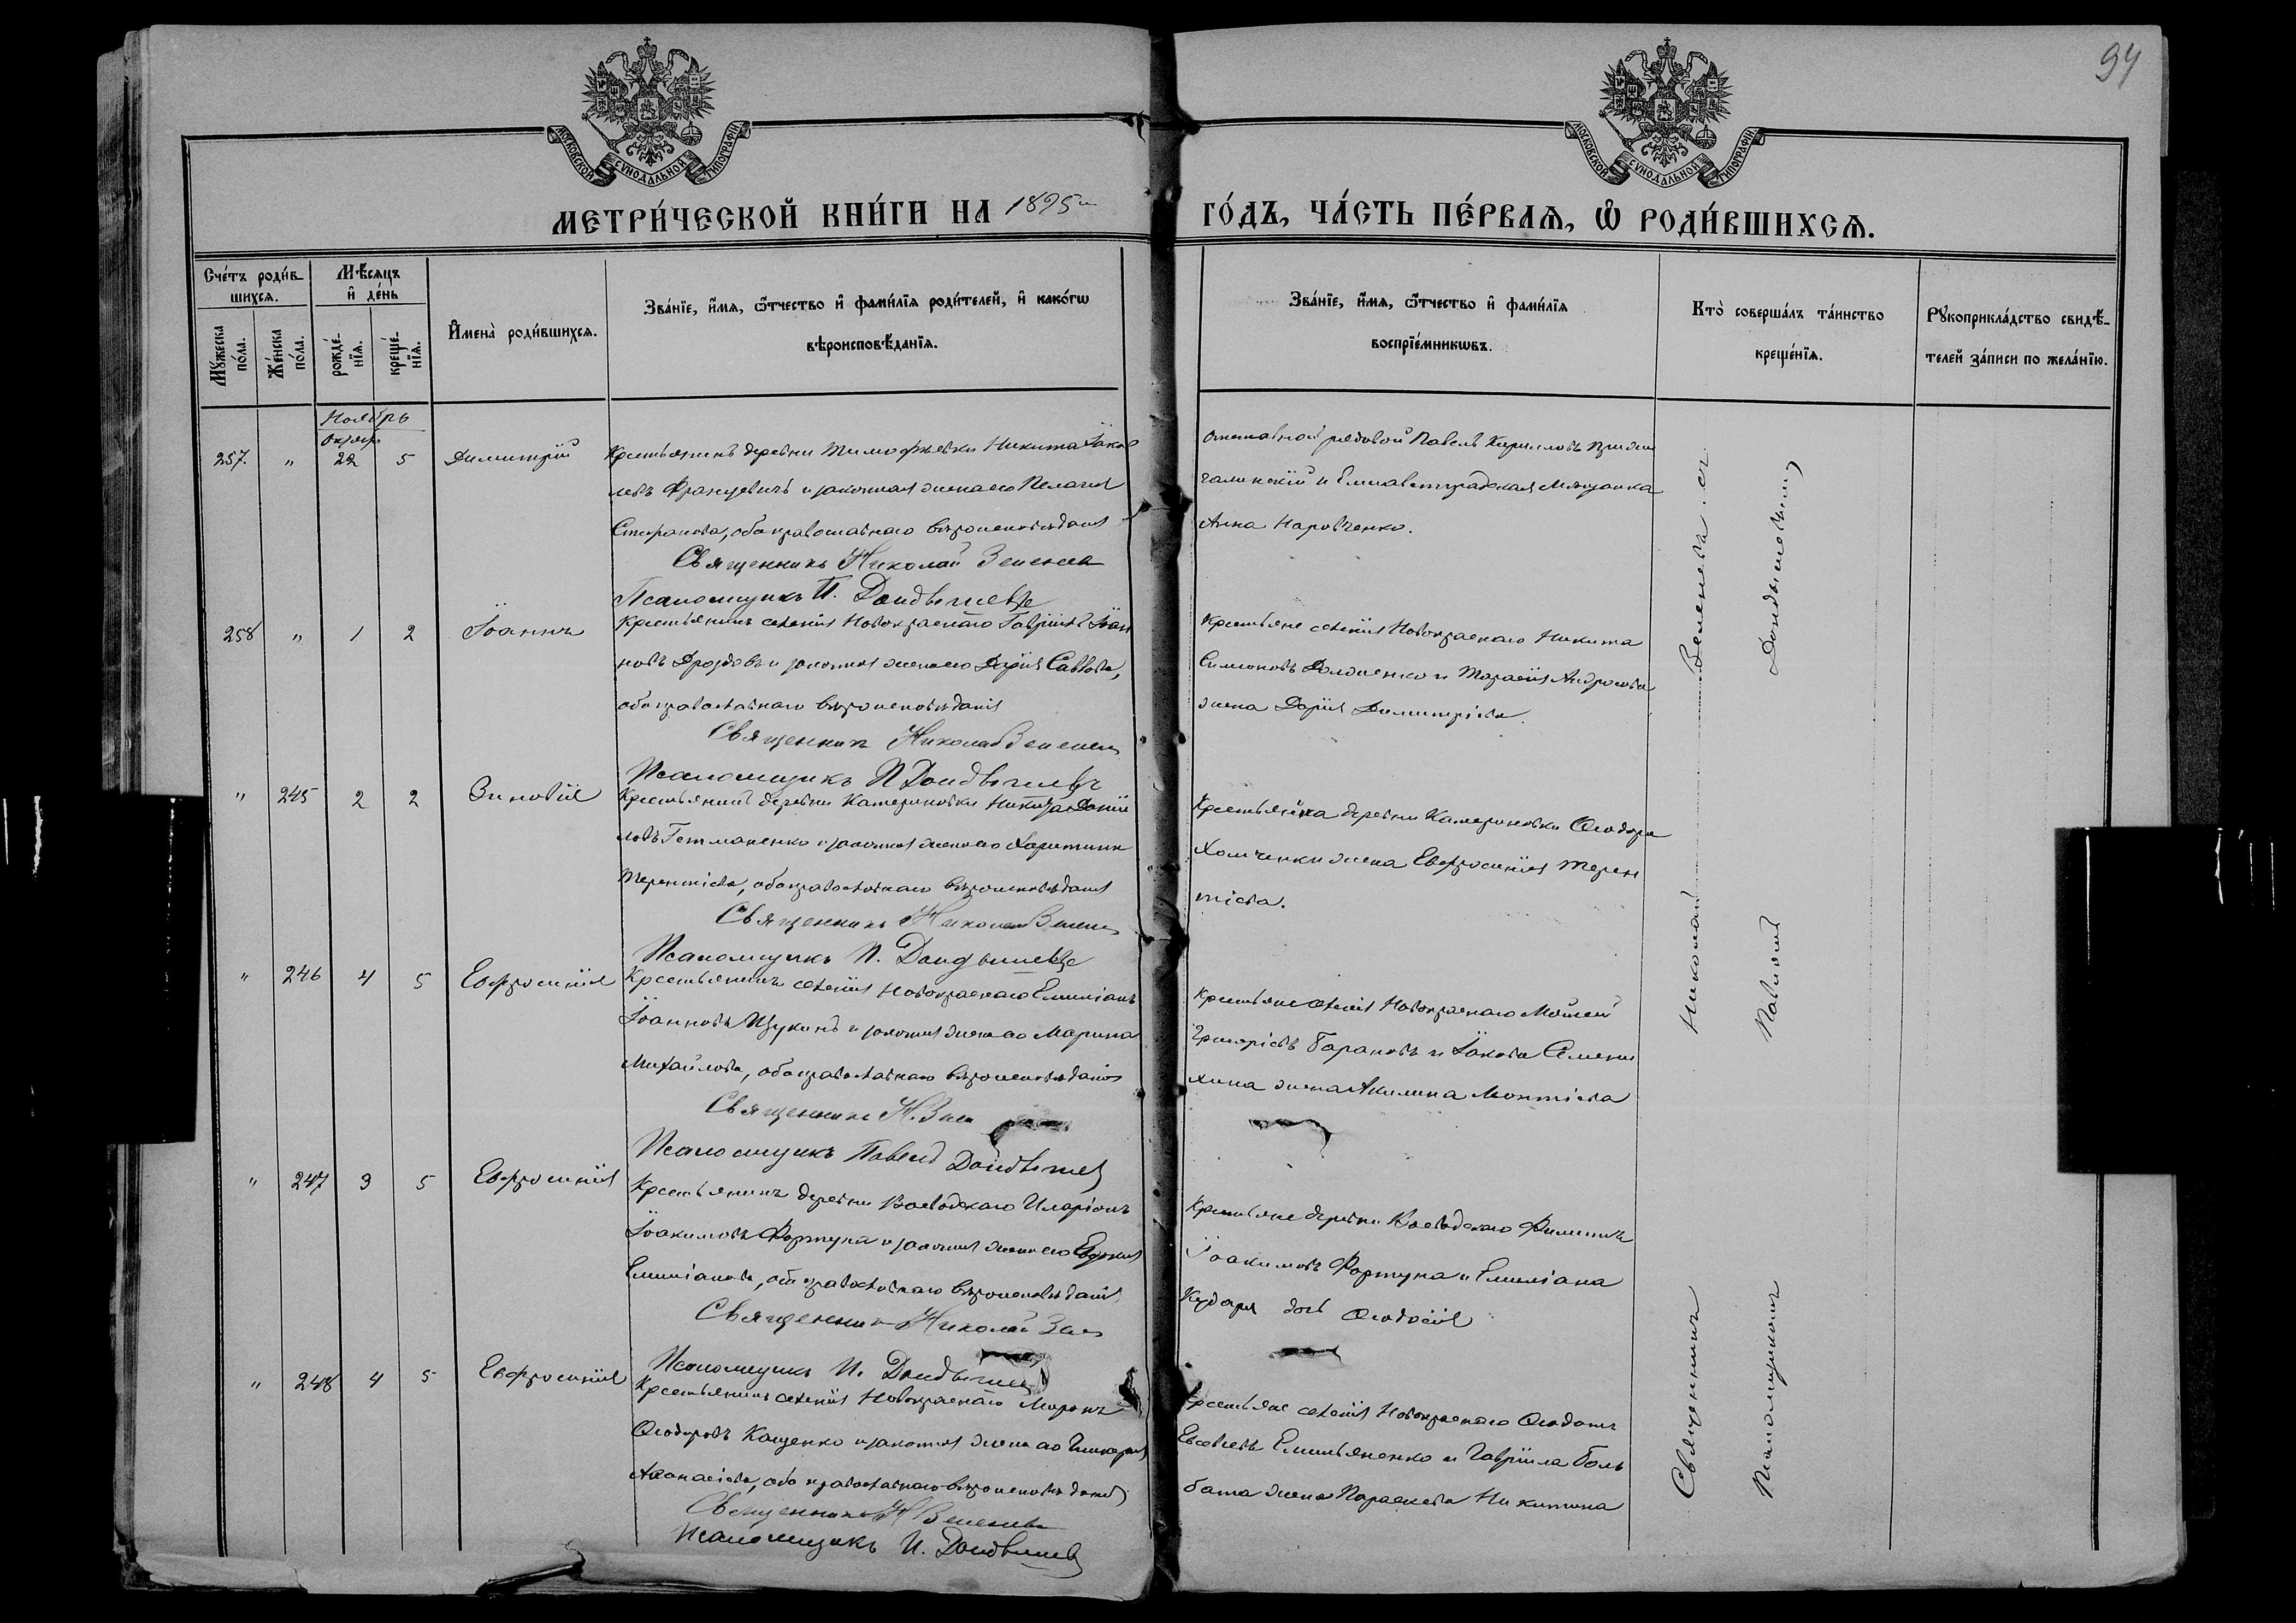 94
МОСКОВСКОЙ СУНОДАЛЬНОЙ ТИПОГРАФІИ
МОСКОВСКОЙ СУНОДАЛЬНОЙ ТИПОГРАФІИ
МЕТРИ́ЧЕСКОЙ КНИ́ГИ НА 1895
ГО́ДЪ, ЧА́СТЬ ПЕ́РВАѦ, Ѡ҆ РОДИ́ВШИХСѦ.
Сче́тъ роди́в-
шихсѧ.
Мѣ́сѧцъ
и҆ де́нь
Мꙋ́жеска
по́ла.
Же́нска
по́ла.
рожде́-
нїѧ.
креще́-
нїѧ.
И҆мена̀ роди́вшихсѧ.
Зва́нїе, и҆́мѧ, ѻ҆́тчество и҆ фами́лїѧ роди́телей, и҆ како́гѡ
вѣроисповѣ́данїѧ.
Зва́нїе, и҆́мѧ, ѻ҆́тчество и҆ фами́лїѧ
воспрїе́мникѡвъ.
Кто̀ соверша́лъ та́инство
креще́нїѧ.
Рꙋкоприкла́дство свидѣ́-
телей за́писи по жела́нїю.
Ноябрь
Октяб.
257. " 22 5 Димитрій
Крестьянинъ деревни Тимофѣевки Никита Іаков
левъ Францевичъ и законная жена его Пелагія
Стефанова, оба православнаго вѣроисповѣданія
Священникъ Николай
Псаломщикъ П.
Отставной рядовой Павелъ Кирилловъ
и Елисаветградская Мѣщанка
Анна
258 " 1 2 Іоаннъ
Крестьянинъ селенія Новокраснаго Гавріилъ Іоан
новъ Дроздовъ и законная жена его Дарія Саввова,
оба православнаго вѣроисповѣданія
Священникъ Николай
Псаломщикъ П
Крестьяне селенія Новокраснаго Никита
Симеоновъ и Тарасія Андросова
жена Дарія Димитріева.
" 245 2 2 Зиновія
Крестьянинъ деревни Катериновки Никита Даніи
ловъ Гетманенко и законная жена его Харитина
Терентіева, оба православнаго вѣроисповѣданія
Священникъ Николай
Псаломщикъ П.
Крестьянка деревни Катериновки Ѳеодора
Хомченки жена Евфросинія Терен
тіева.
" 246 4 5 Евфросинія
Крестьянинъ селенія Новокраснаго Емиліанъ
Іоанновъ Щукинъ и законная жена его Марина
Михайлова, оба православнаго вѣроисповѣданія
Священникъ Н.
Псаломщикъ Павелъ
Крестьяне селенія Новокраснаго Моисей
Григоріевъ Барановъ и Іакова Семени
хина жена Акилина Леонтіева
" 247 3 5 Евфросинія
Крестьянинъ деревни Воеводскаго Иларіонъ
Іоакимовъ Фортуна и законная жена его Евдокія
Емиліанова, оба православнаго вѣроисповѣданія
Священникъ Николай
Псаломщикъ П.
Крестьяне деревни Воеводскаго Филиппъ
Іоакимовъ Фортуна и Емиліана
дочь Ѳеодосія
" 248 4 5 Евфросинія
Крестьянинъ селенія Новокраснаго Миронъ
Ѳеодоровъ Кащенко и законная жена его Гликерія
Аѳанасіева, оба православнаго вѣроисповѣданія
Священникъ Н
Псаломщикъ П.
Крестьяне селенія Новокраснаго Ѳеодотъ
Евсевіевъ Емельяненко и Гавріила Боль
бата жена Параскева Никитина
Священникъ Николай
Псаломщикъ Павелъ